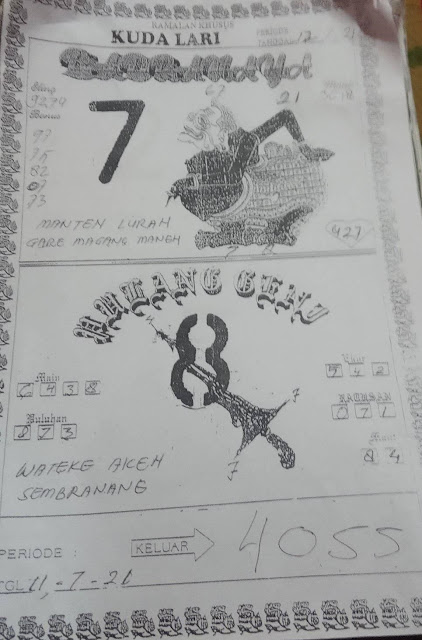 RAMALAN KHUSUS
KUDA LARI
PERIODE
TANGGAL 17 21
9274
Bonus
97
75
82
07
73
7
21
MANTEN LURAH
GARE MAGANG MANEH
427
8
Main
6 4 3 8
Puluhan
8 7 3
7 4 2
RATUSAN
0 7 1
8 4
4
7
7
WATEKE AKEH
SEMBRANANG
PERIODE :
KELUAR
4055
TGL 11, -7 - 21